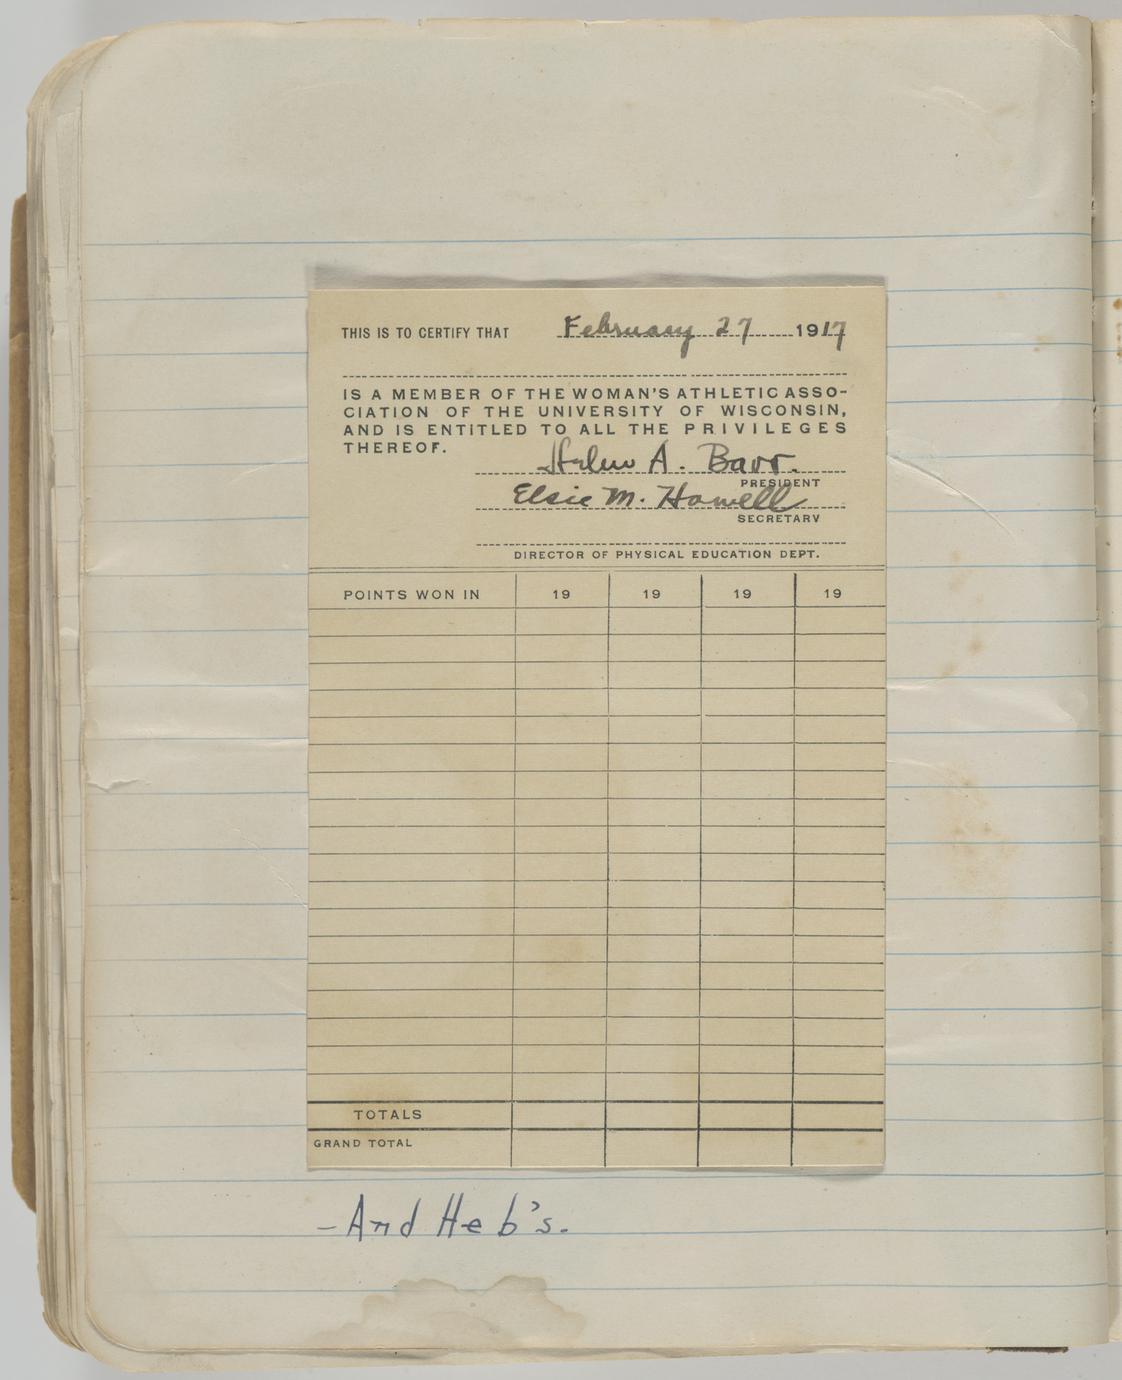 THIS IS TO CERTIFY THAT February 27 1917
IS A MEMBER OF THE WOMAN'S ATHLETIC ASSO-
CIATION OF THE UNIVERSITY OF WISCONSIN,
AND IS ENTITLED TO ALL THE PRIVILEGES
THEREOF.
Helen A. Barr.
PRESIDENT
Elsie M. Howell
SECRETARY
DIRECTOR OF PHYSICAL EDUCATION DEPT.
POINTS WON IN 19 19 19 19
TOTALS
GRAND TOTAL
- And Heb's.